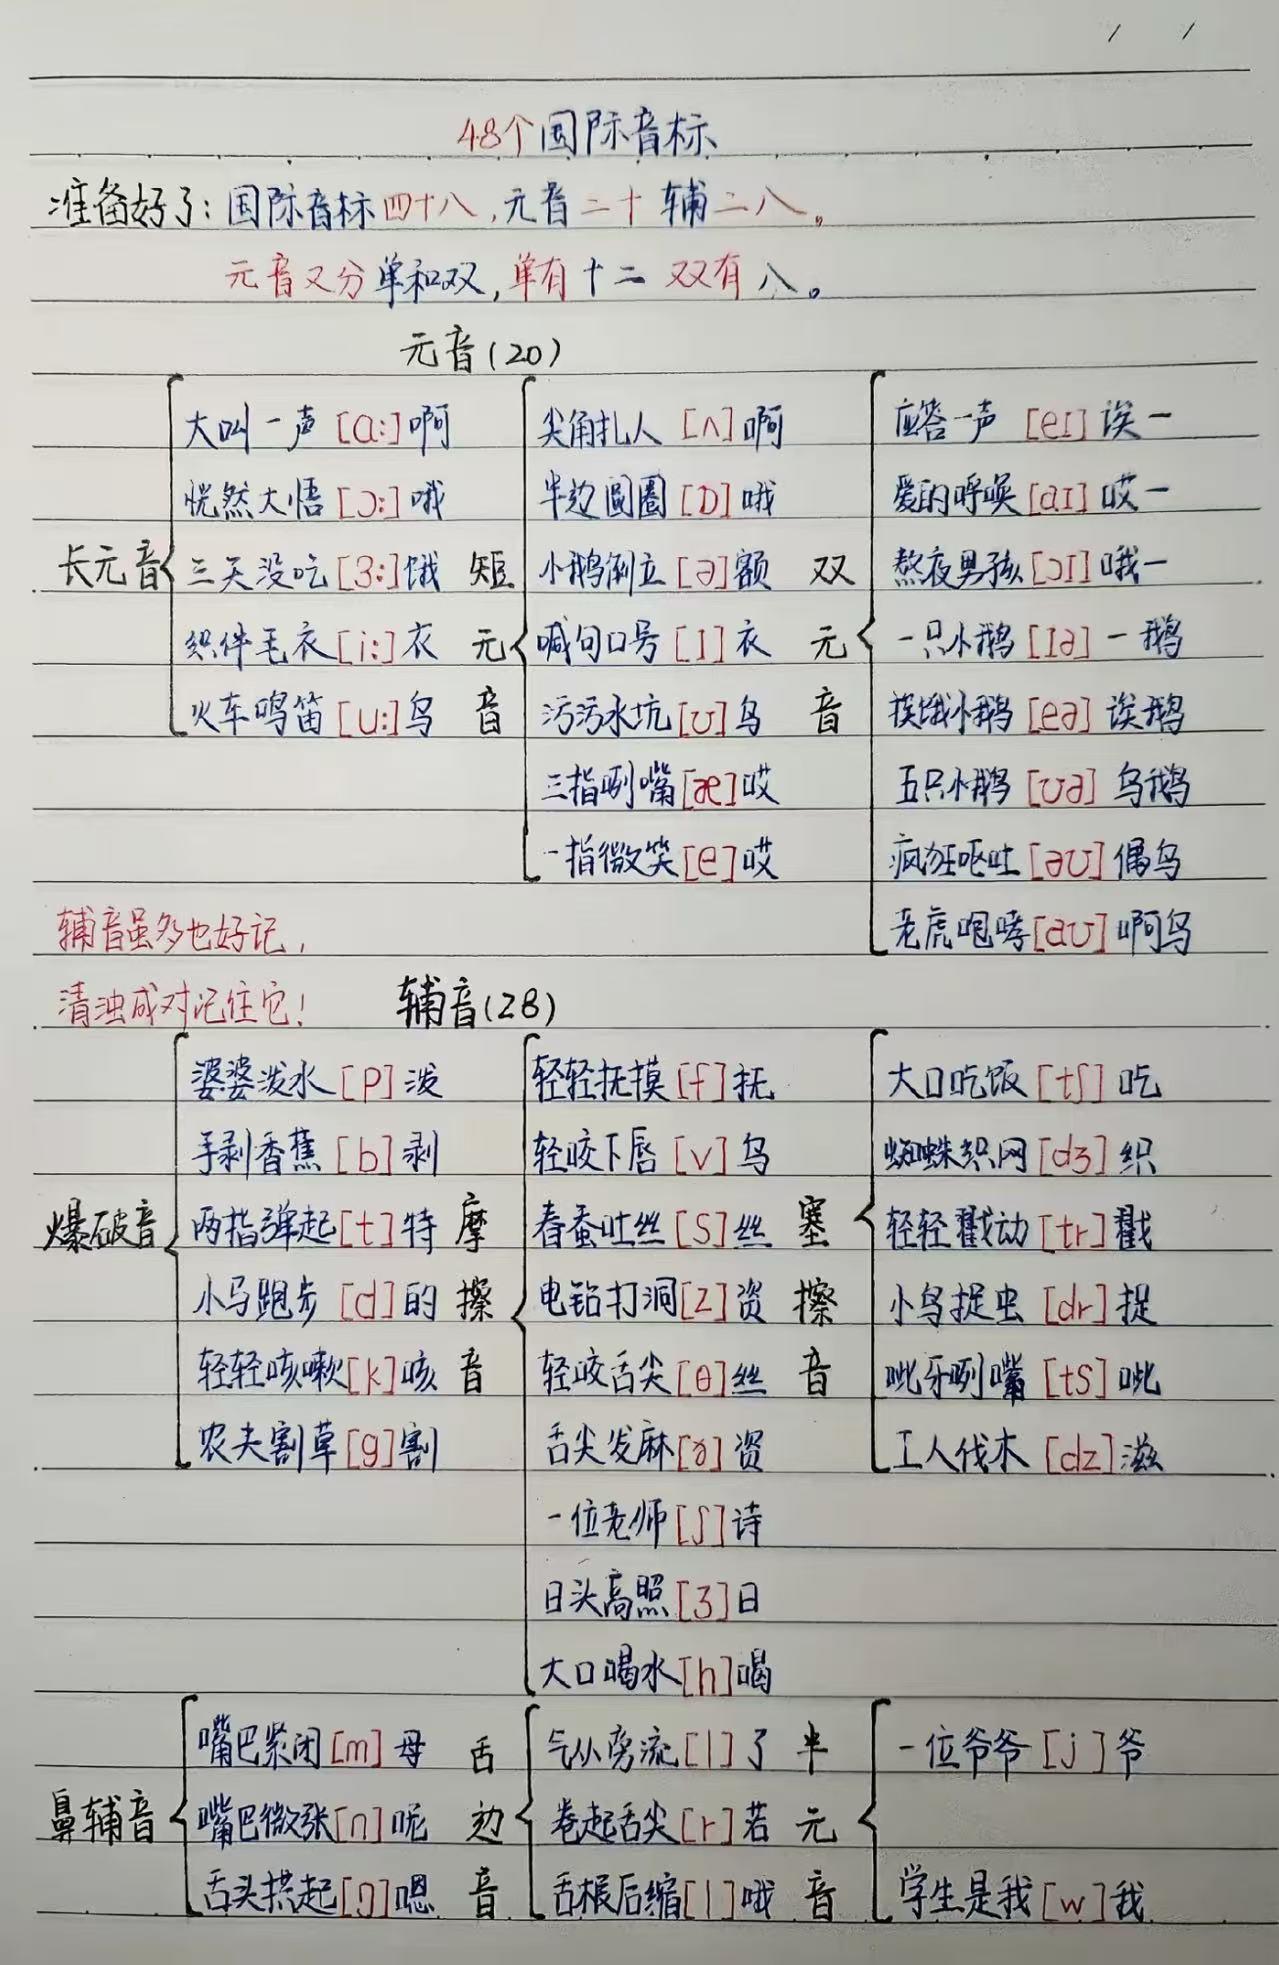 48个国际音标
准备好了:国际音标四十八,元音二十 辅二八。
元音又分单和双,单有十二 双有八。
元音(20)
长元音
大叫一声[ɑ:]啊
恍然大悟[ɔ:]哦
三天没吃[3:]饿
织件毛衣[i:]衣
火车鸣笛[u:]乌
短元音
尖角扎人[ʌ]啊
半边圆圈[ɒ]哦
小鹅倒立[ə]额
喊句口号[I]衣
污污水坑[ʊ]乌
三指咧嘴[æ]哎
一指微笑[e]哎
双元音
应答一声[eI]诶一
爱的呼唤[aI]哎一
熬夜男孩[ɔI]哦一
一只小鹅[Iə]一鹅
挨饿小鹅[eə]诶鹅
五只小鹅[ʊə]乌鹅
疯狂呕吐[əʊ]偶乌
老虎咆哮[aʊ]啊乌
辅音虽多也好记,
清浊成对记住它!
辅音(28)
爆破音
婆婆泼水[p]泼
手剥香蕉[b]剥
两指弹起[t]特
小马跑步[d]的
轻轻咳嗽[k]咳
农夫割草[g]割
摩擦音
轻轻抚摸[f]抚
轻咬下唇[v]乌
春蚕吐丝[s]丝
电钻打洞[z]资
轻咬舌尖[θ]丝
舌尖发麻[ð]资
一位老师[ʃ]诗
日头高照[ʒ]日
大口喝水[h]喝
塞擦音
大口吃饭[tʃ]吃
蜘蛛织网[dʒ]织
轻轻戳动[tr]戳
小鸟捉虫[dr]捉
呲牙咧嘴[ts]呲
工人伐木[dz]滋
鼻辅音
嘴巴紧闭[m]母
嘴巴微张[n]呢
舌头拱起[ŋ]嗯
舌边音
气从旁流[l]了
卷起舌尖[r]若
舌根后缩[l]哦
半元音
一位爷爷[j]爷
学生是我[w]我